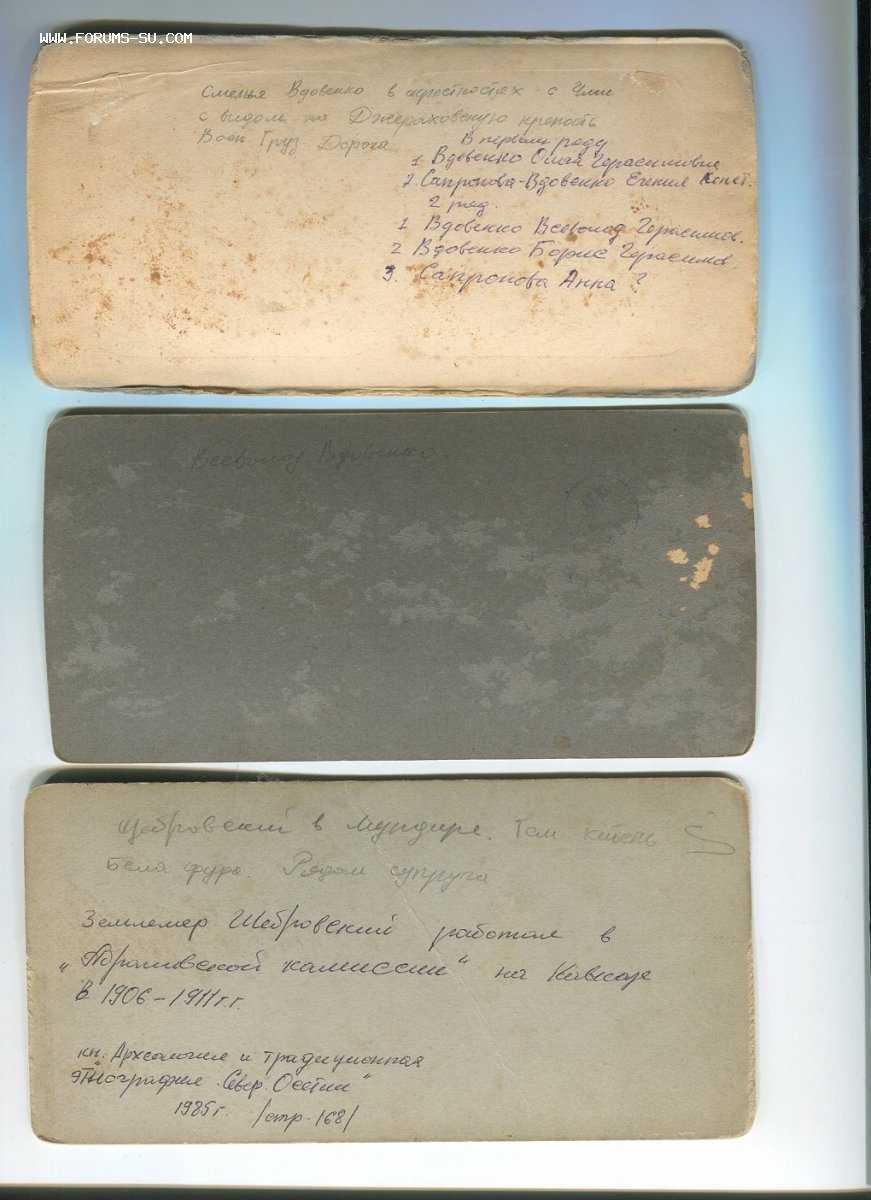 WWW.FORUMS-SU.COM
Смелья Вдовенко в окрестностях с Чми
с видом на Джераховскую крепость
Воен Груз Дорога
В первом ряду
1. Вдовенко Ольга Герасимовна
2. Сапронова-Вдовенко Евгения Конст.
2 ряд.
1 Вдовенко Всеволод Герасимов.
2 Вдовенко Борис Герасимов.
3. Сапронова Анна ?
Всеволод Вдовенко.
Щебровский в мундире. Там
Бела фура. Рядом супруга.
Землемер Щебровский работал в
„Абрамовской камиссии“ на Кавказе
в 1906-1911 г.г.
кн. „Археология и традиционная
этнография Север. Осетии“
1985г. /стр. 168/